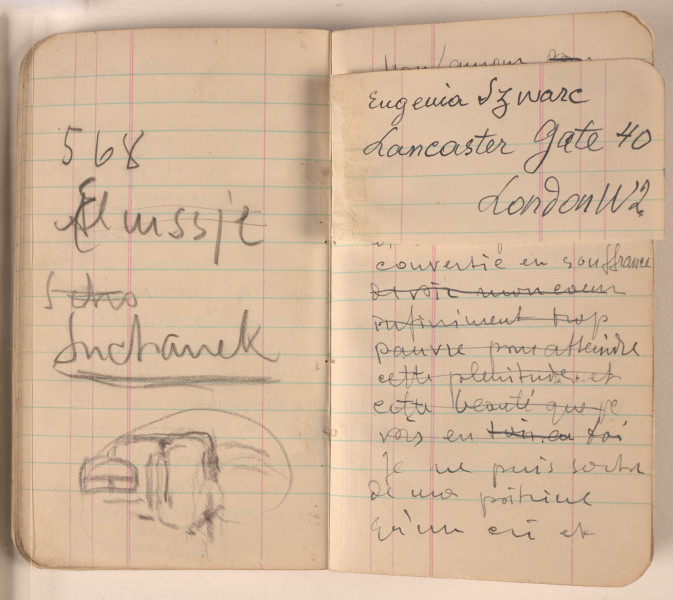 568
Suchanek
mon amour
Eugenia Szwarc
Lancaster Gate 40
London W2
convertie en souffrance
de voir mon coeur
infiniment trop
pauvre pour atteindre
cette plenitude et
cette beauté que je
vois en toi en toi
Je ne puis sortir
de ma poitrine
qu'un cri et